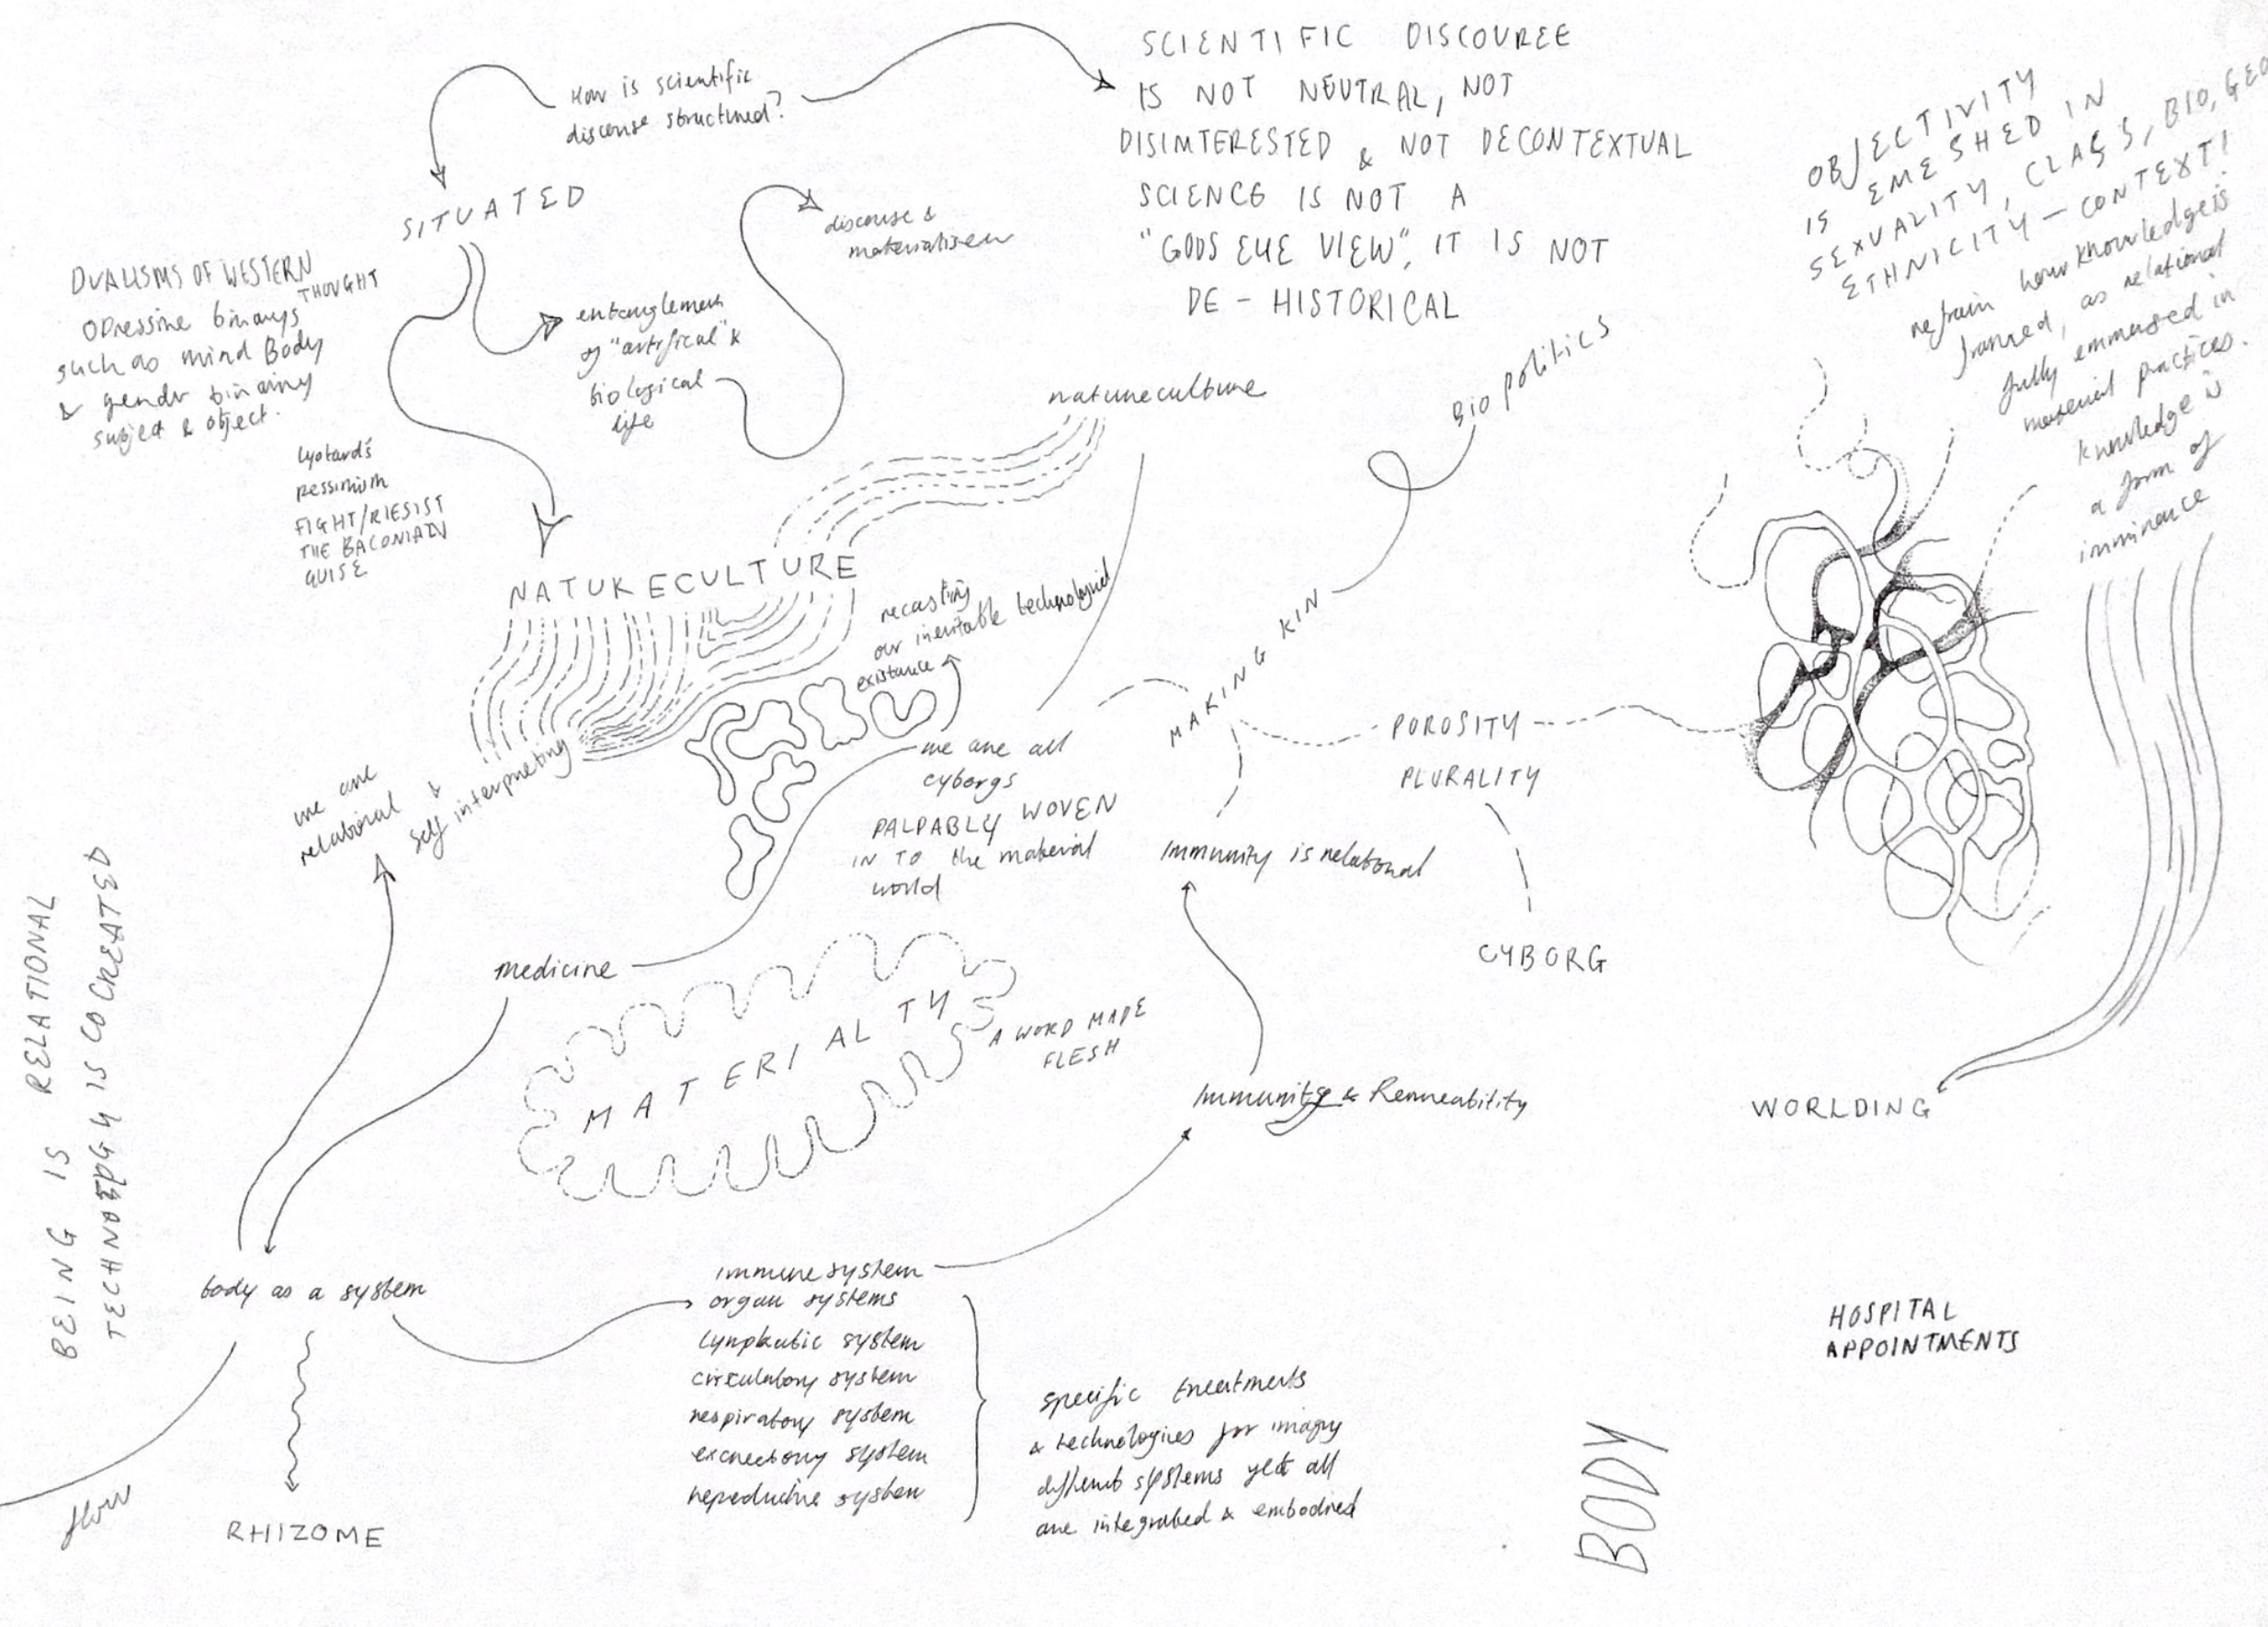 How is scientific
discourse structured?
SCIENTIFIC DISCOUREE
IS NOT NEUTRAL, NOT
DISIMTERESTED & NOT DECONTEXTUAL
SCIENCE IS NOT A
"GODS EYE VIEW", IT IS NOT
DE - HISTORICAL
OBJECTIVITY
IS EMESHED IN
SEXUALITY, CLASS, BIO, GEO
ETHNICITY - CONTEXT!
how knowledge is
framed, as relational
fully emmersed in
material practices.
knowledge is
a form of
imminence
SITUATED
discourse &
DUALISMS OF WESTERN
THOUGHT
OPressive binarys
such as mind Body
& gender binariny
subject & object.
entanglement
of "artifical" &
biological
life
Lyotard's
pessimism
FIGHT/RIESIST
THE BACONIAN
GUISE
natureculture
Bio politics
NATURECULTURE
recasting
our inevitable technological
existance
MAKING KIN
we are all
cyborgs
PALPABLY WOVEN
IN TO the material
world
POROSITY
PLURALITY
we are
relational &
self interpreting
Immunity is relational
CYBORG
medicine
MATERIALTY
A WORD MADE
FLESH
Immunity & Permeability
WORLDING
BEING IS RELATIONAL
TECHNOLOGY IS CO CREATED
body as a system
immune system
organ systems
lymphatic system
circulatory system
respiratory system
excrectory system
reproductive system
specific treatments
& technologies for imagry
different systems yet all
are integrated & embodied
HOSPITAL
APPOINTMENTS
flow
RHIZOME
BODY